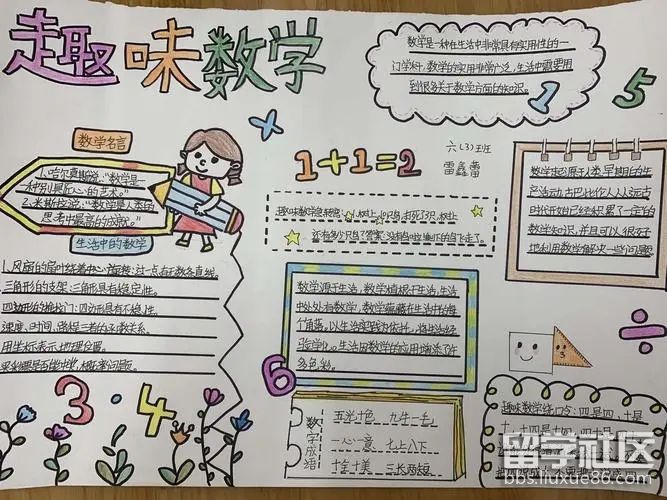 趣味数学
数学是一种在生活中非常具有实用性的一
门学科,数学的实用非常广泛,生活中需要用
到很多关于数学方面的知识。
1
5
×
数学名言
1.哈尔莫斯说:“数学是
一种别具匠心的艺术。”
2.米斯拉说:“数学是人类的
思考中最高的成就。”
1+1=2
六(3)班
雷鑫蕾
数学起源于人类早期的生
产活动,古巴比伦人从远古
时代开始已经积累了一定的
数学知识,并且可以很好
地利用数学解决一些问题
还有多少只鸟?答案:没有
生活中的数学
三角形的支架:三角形具有稳定性。
速度、时间、路程三者的正反数关系。
用坐标表示地理位置。
数学源于生活,数学植根于生活,生活
中处处有数学,数学蕴藏在生活中的每
个角落,以生活实践为依书,将生活经
验学化。生活因数学的应用增添了许
多色彩。
÷
3·4
6
数字成语
五光十色 九牛一毛
一心一意 七上八下
十全十美 三长两短
趣味数学绕口令:四是四,十是
十,十四是十四,四十是
留学社区
bbs.liuxue86.com